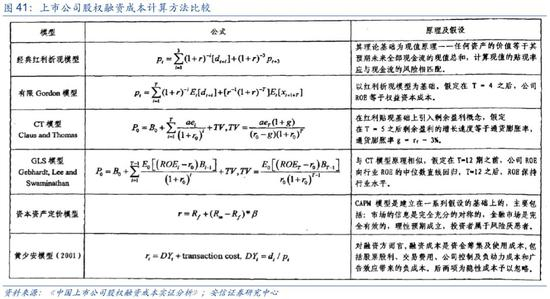 图 41：上市公司股权融资成本计算方法比较
模型 公式 原理及假设
经典红利折现模型 p_t = \sum_{i=1}^{3}(1+r)^{-i}[d_{t+i}]+(1+r)^{-3}p_{t+3}
其理论基础为现值原理——任何资产的价值等于其
预期未来全部现金流的现值总和，计算现值的贴现率
应与现金流的风险相匹配。
有限 Gordon 模型 p_t = \sum_{i=1}^{T}(1+r)^{-i}E_t[d_{t+i}]+[r^{-1}(1+r)^{-T}]E_t[x_{t+1+T}]
以红利折现模型为基础，假定在 T = 4 之后，公司
ROE 等于权益资本成本。
CT 模型
Claus and Thomas
P_0 = B_0+\sum_{t=1}^{T}\frac{ae_t}{(1+r_0)^t}+TV, TV=\frac{ae_T(1+g)}{(r_0-g)(1+r_0)^T}
在红利贴现基础上引入剩余盈利概念，假定
在 T = 5 之后剩余盈利的增长速度等于通货膨胀率，
通货膨胀率 g = r_f − 3%。
GLS 模型
Gebhardt, Lee and
Swaminathan
P_0 = B_0+\sum_{t=1}^{T-1}\frac{E_0[(ROE_t-r_0)B_{t-1}]}{(1+r_0)^t}+TV, TV=\frac{E_0[(ROE_T-r_0)B_{T-1}]}{(1+r_0)^{T-1}}
与 CT 模型原理相似，假定在 T=12 期之前，公司 ROE
向行业 ROE 的中位数直线回归，T=12 之后，ROE 保持
行业水平。
资本资产定价模型 r = R_f+(R_m-R_f)*β
CAPM 模型是建立在一系列假设的基础上的，主要包
括：市场的信息是完全充分的对称的，金融市场是完
全有效的，理性预期成立，投资者属于风险厌恶者。
黄少安模型（2001） r_i = DY_i + transaction cost, DY_i = d_i / p_i
对融资方而言，融资成本是资金筹集及使用成本，包
括股票股利、交易费用、公司控制及负动力成本和广
告效应带来的负成本。后两项为隐性成本予以忽略。
资料来源：《中国上市公司股权融资成本实证分析》；安信证券研究中心